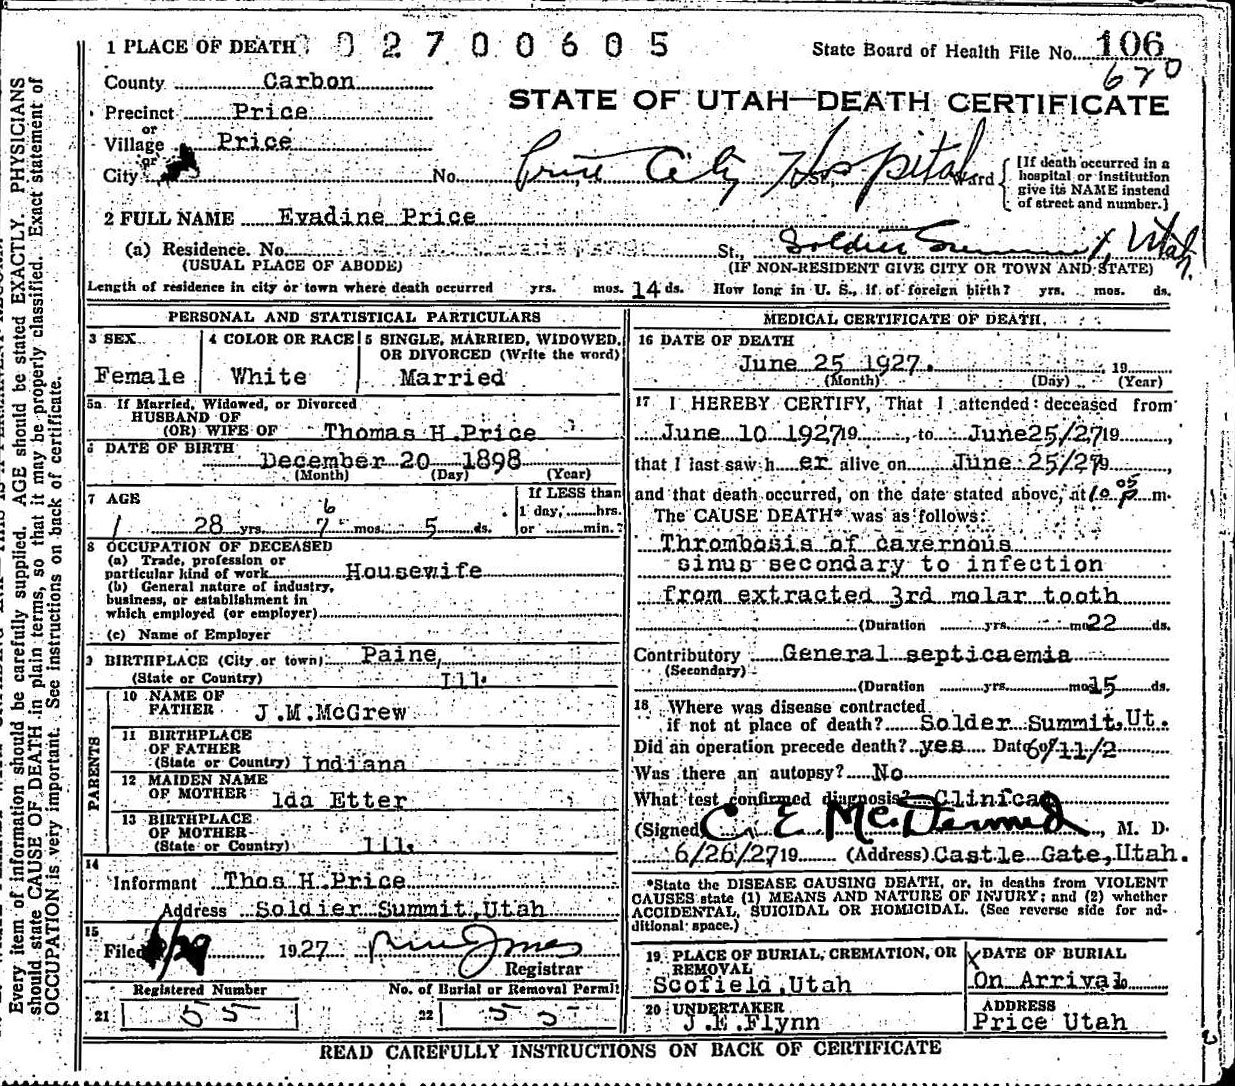 1 PLACE OF DEATH 02700605 State Board of Health File No. 106
670
County Carbon
STATE OF UTAH—DEATH CERTIFICATE
Precinct Price
or
Village Price
or
City No. Price City Hospital St., Ward
[If death occurred in a
hospital or institution
give its NAME instead
of street and number.]
2 FULL NAME Evadine Price
(a) Residence. No. St., Soldier Summit, Utah.
(USUAL PLACE OF ABODE) (IF NON-RESIDENT GIVE CITY OR TOWN AND STATE)
Length of residence in city or town where death occurred yrs. mos. 14 ds. How long in U. S., if of foreign birth? yrs. mos. ds.
PERSONAL AND STATISTICAL PARTICULARS
3 SEX 4 COLOR OR RACE 5 SINGLE, MARRIED, WIDOWED,
OR DIVORCED (Write the word)
Female White Married
5a If Married, Widowed, or Divorced
HUSBAND OF
(OR) WIFE OF Thomas H.Price
6 DATE OF BIRTH
December 20 1898
(Month) (Day) (Year)
7 AGE If LESS than
6 1 day, hrs.
28 yrs. 7 mos. 5 ds. or min.?
8 OCCUPATION OF DECEASED
(a) Trade, profession or
particular kind of work Housewife
(b) General nature of industry,
business, or establishment in
which employed (or employer)
(c) Name of Employer
9 BIRTHPLACE (City or town) Paine,
(State or Country) Ill.
PARENTS
10 NAME OF
FATHER J.M.McGrew
11 BIRTHPLACE
OF FATHER
(State or Country) Indiana
12 MAIDEN NAME
OF MOTHER Ida Etter
13 BIRTHPLACE
OF MOTHER
(State or Country) Ill.
14
Informant Thos H.Price
Address Soldier Summit,Utah
15
Filed 1927
Registrar
Registered Number No. of Burial or Removal Permit
21 55 22 55
MEDICAL CERTIFICATE OF DEATH
16 DATE OF DEATH
June 25 1927. 19
(Month) (Day) (Year)
17 I HEREBY CERTIFY, That I attended deceased from
June 10 1927 19 , to June25/27 19 ,
that I last saw h er alive on June 25/27 19 ,
and that death occurred, on the date stated above, at 10 05 P m.
The CAUSE DEATH* was as follows:
Thrombosis of cavernous
sinus secondary to infection
from extracted 3rd molar tooth
(Duration yrs. mos 22 ds.
Contributory General septicaemia
(Secondary)
(Duration yrs. mos 15 ds.
18 Where was disease contracted
if not at place of death? Solder Summit,Ut.
Did an operation precede death? yes Date of 6/11/2
Was there an autopsy? No
What test confirmed diagnosis? Clinical
(Signed C. E. McDermid, M. D.
6/26/27 19 (Address) Castle Gate,Utah.
*State the DISEASE CAUSING DEATH, or, in deaths from VIOLENT
CAUSES state (1) MEANS AND NATURE OF INJURY; and (2) whether
ACCIDENTAL, SUICIDAL OR HOMICIDAL. (See reverse side for ad-
ditional space.)
19 PLACE OF BURIAL, CREMATION, OR
REMOVAL
Scofield,Utah
DATE OF BURIAL
On Arrival
20 UNDERTAKER
J.E.Flynn
ADDRESS
Price Utah
READ CAREFULLY INSTRUCTIONS ON BACK OF CERTIFICATE
Every item of information should be carefully supplied. AGE should be stated EXACTLY. PHYSICIANS
should state CAUSE OF DEATH in plain terms, so that it may be properly classified. Exact statement of
OCCUPATION is very important. See instructions on back of certificate.